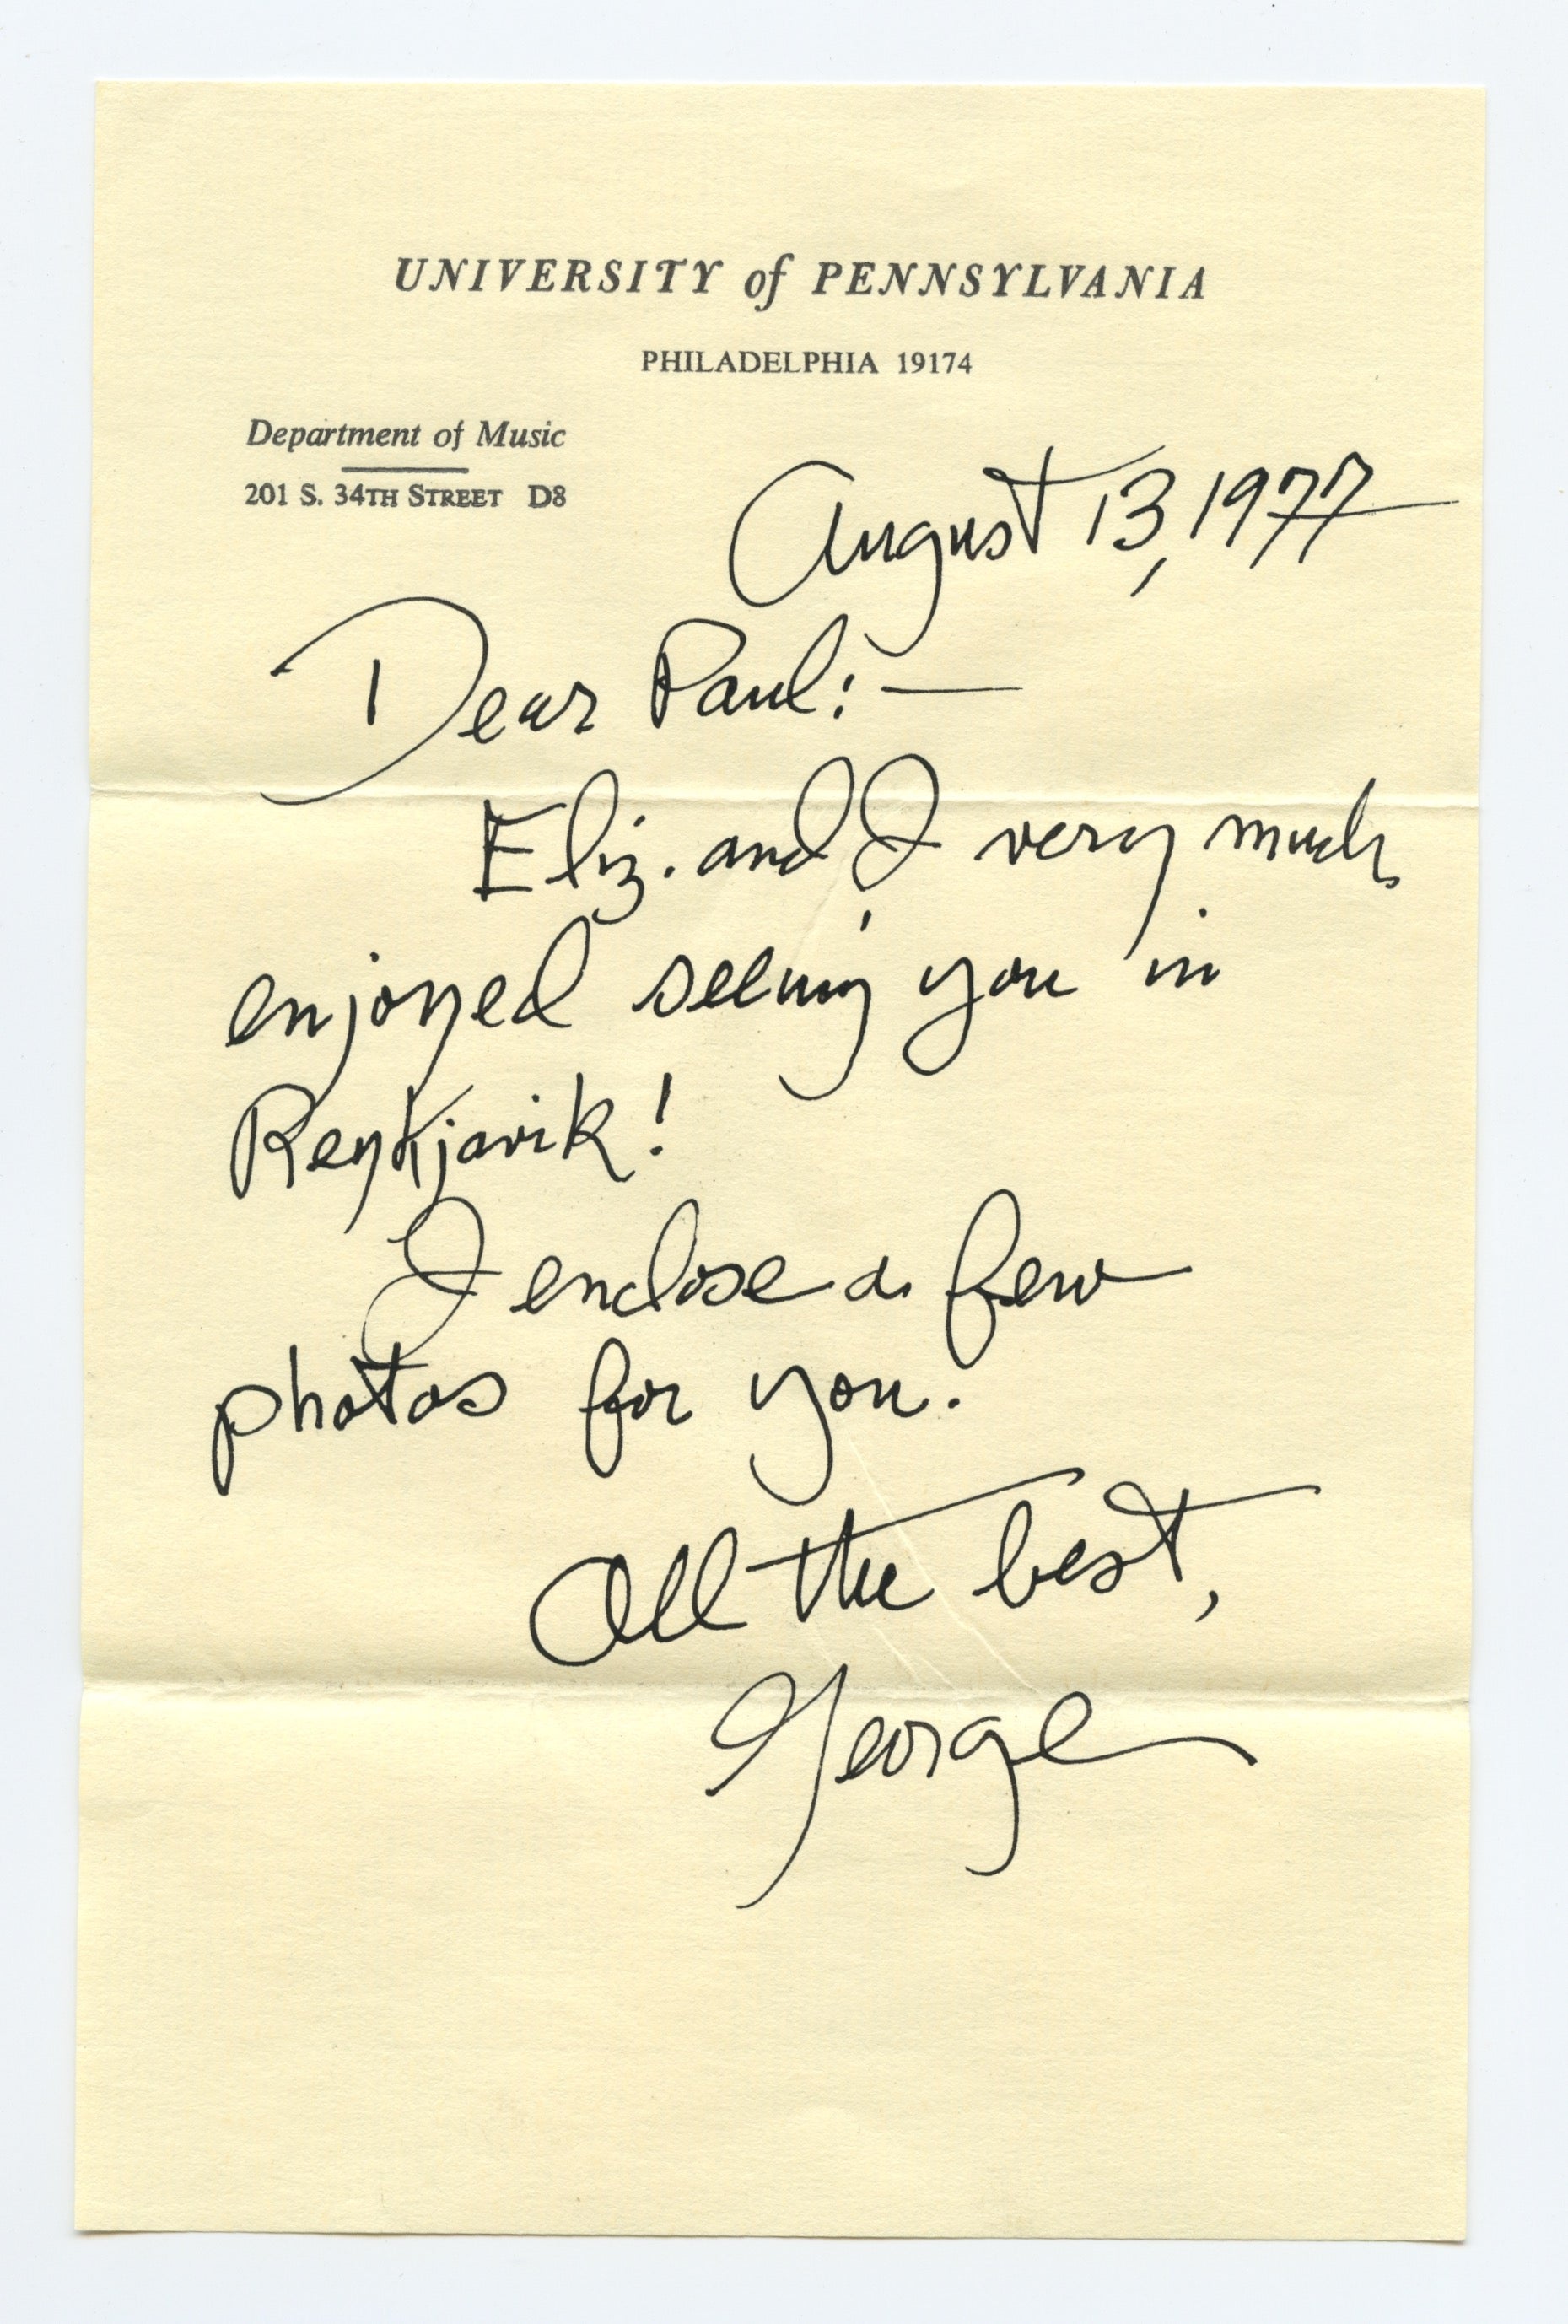 UNIVERSITY of PENNSYLVANIA
PHILADELPHIA 19174
Department of Music
201 S. 34TH STREET D8
August 13, 1977
Dear Paul:—
Eliz. and I very much
enjoyed seeing you in
Reykjavik!
I enclose a few
photos for you.
All the best,
George